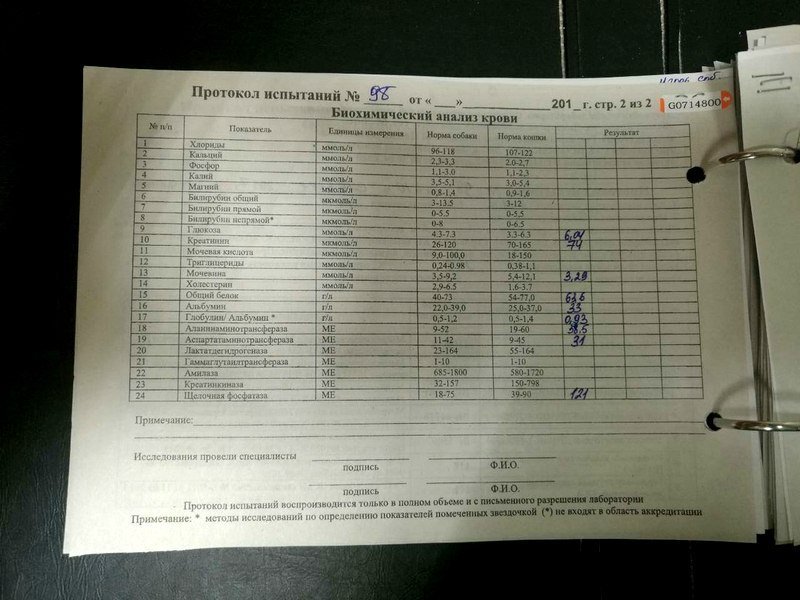 Протокол испытаний № 98 от « ___ »________________201_ г. стр. 2 из 2 G0714800
Биохимический анализ крови
№ п/п Показатель Единицы измерения Норма собаки Норма кошки Результат
1 Хлориды ммоль/л 96-118 107-122
2 Кальций ммоль/л 2,3-3,3 2.0-2,7
3 Фосфор ммоль/л 1,1-3.0 1,1-2,3
4 Калий ммоль/л 3,5-5,1 3,0-5,4
5 Магний ммоль/л 0,8-1,4 0,9-1,6
6 Билирубин общий мкмоль/л 3-13,5 3-12
7 Билирубин прямой мкмоль/л 0-5.5 0-5,5
8 Билирубин непрямой* мкмоль/л 0-8 0-6.5
9 Глюкоза ммоль/л 4.3-7.3 3.3-6.3 6,04
10 Креатинин мкмоль/л 26-120 70-165 74
11 Мочевая кислота мкмоль/л 9,0-100,0 18-150
12 Триглицериды ммоль/л 0,24-0.98 0,38-1,1
13 Мочевина ммоль/л 3,5-9,2 5,4-12,1 3,29
14 Холестерин ммоль/л 2,9-6.5 1,6-3.7
15 Общий белок г/л 40-73 54-77,0 62,6
16 Альбумин г/л 22,0-39,0 25,0-37,0 33
17 Глобулин/ Альбумин * г/л 0,5-1,2 0,5-1,4 0,93
18 Аланинаминотрансфераза МЕ 9-52 19-60 38,5
19 Аспартатаминотрансфераза МЕ 11-42 9-45 31
20 Лактатдегидрогеназа МЕ 23-164 55-164
21 Гаммаглутаилтрансфераза МЕ 1-10 1-10
22 Амилаза МЕ 685-1800 580-1720
23 Креатинкиназа МЕ 32-157 150-798
24 Щелочная фосфатаза МЕ 18-75 39-90 121
Примечание:
Исследования провели специалисты
подпись Ф.И.О.
подпись Ф.И.О.
Протокол испытаний воспроизводится только в полном объеме и с письменного разрешения лаборатории
Примечание: * методы исследований по определению показателей помеченных звездочкой (*) не входят в область аккредитации